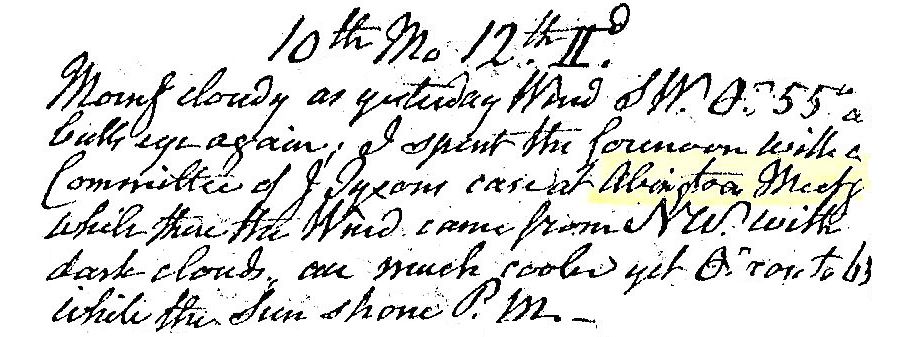 10th Mo 12th IId
Morng cloudy as yesterday Wind SW. 55° a
bulls eye again; I spent the forenoon with a
Committee of J Tysons case at Abington Meetg
while there the Wind came from NW. with
dark clouds, air much cooler yet rose to 63
while the Sun shone P. M. _